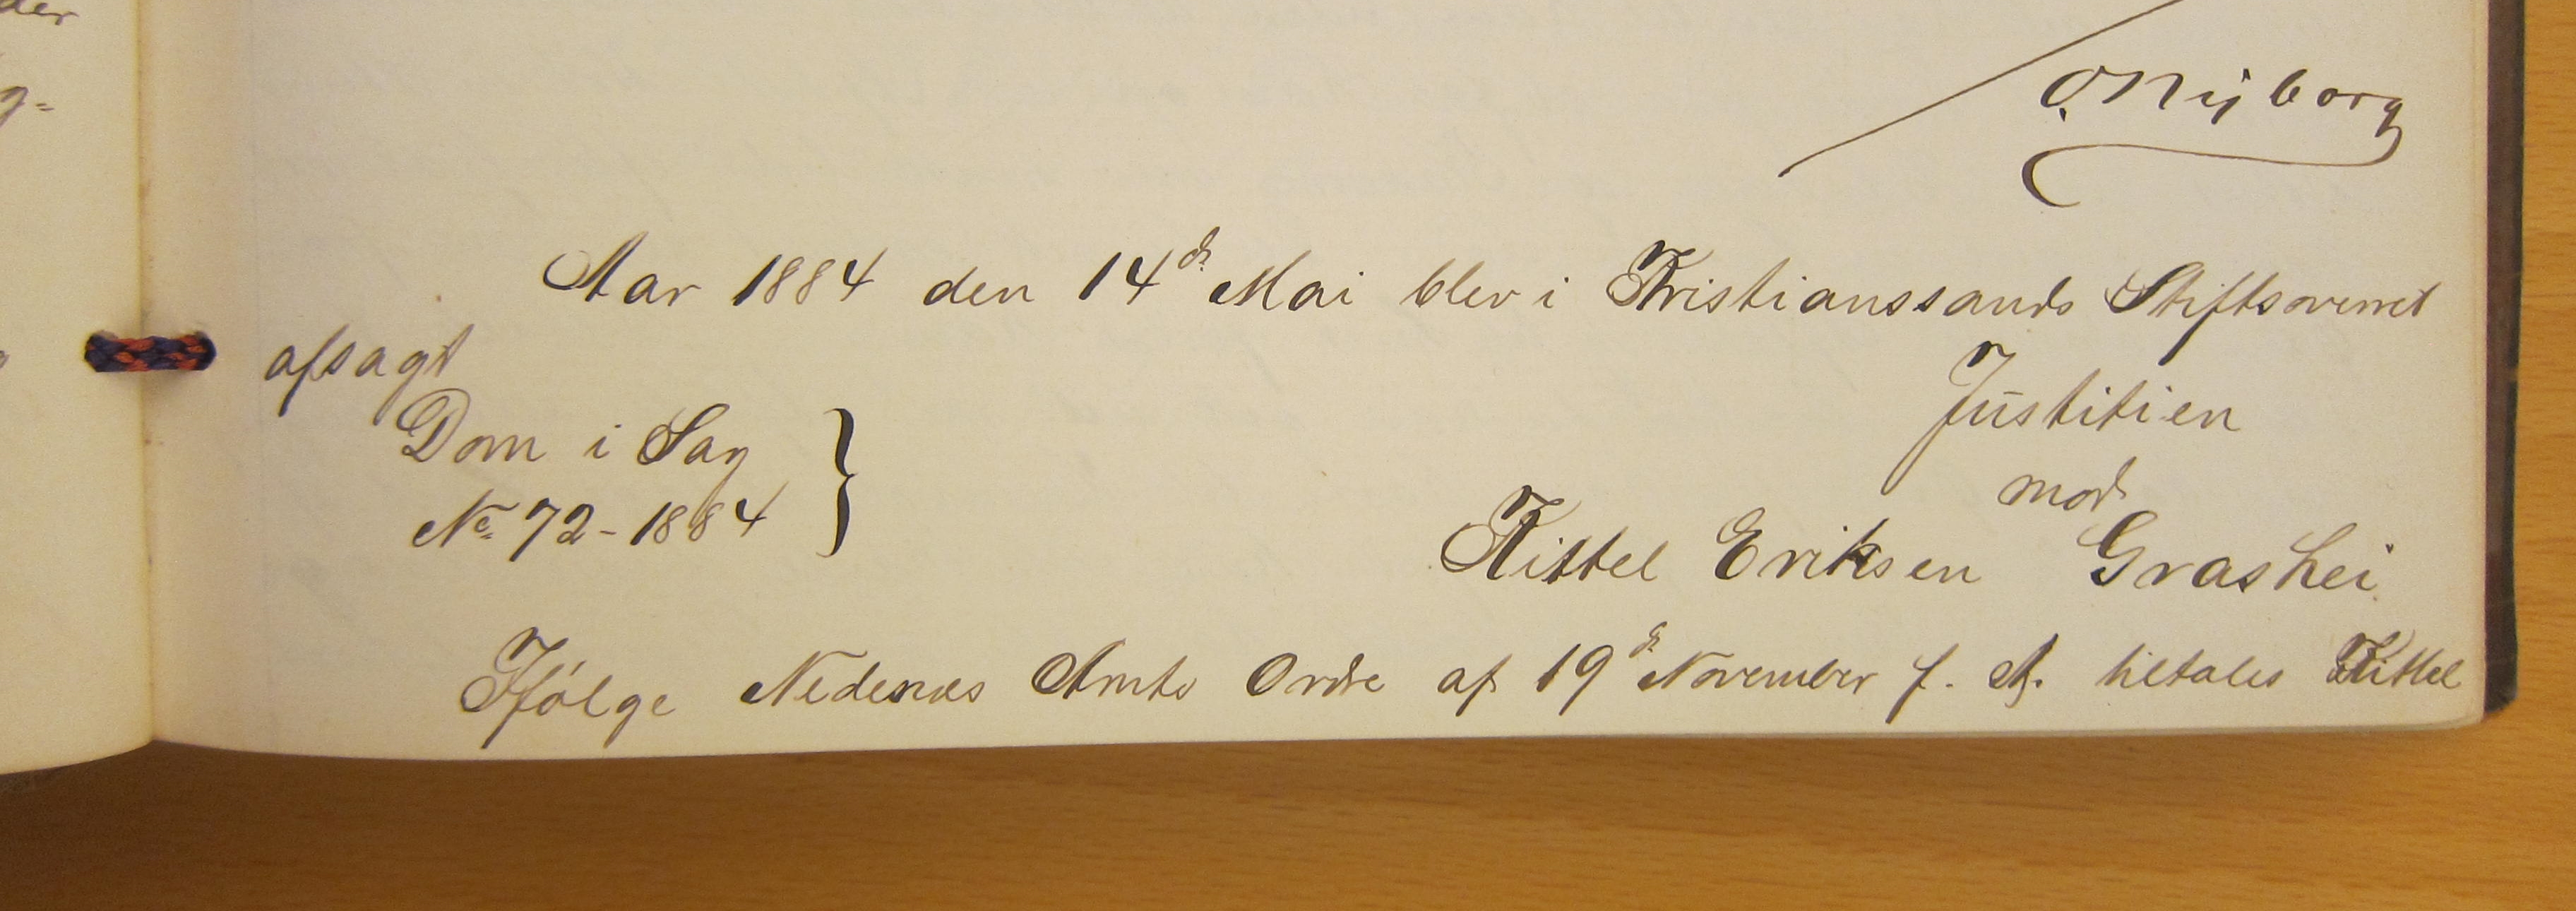 der
g=
O. Nyborg
Aar 1884 den 14de Mai blev i Kristianssands Stiftsoverret
afsagt
Dom i Sag
No 72-1884
Justitien
mod
Kittel Eriksen Grashei
Ifølge Nedenæs Amts Ordre af 19de November f. A. tiltales Kittel